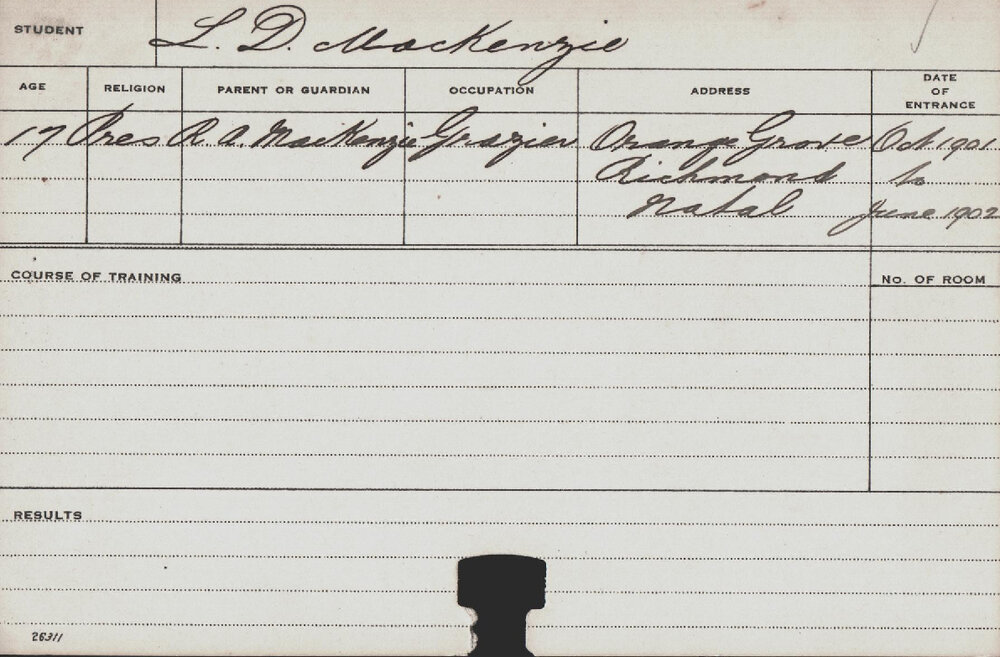 STUDENT L. D. MacKenzie
AGE RELIGION PARENT OR GUARDIAN OCCUPATION ADDRESS DATE OF ENTRANCE
17 Pres R. A. MacKenzie Grazier Orange Grove Oct 1901
Richmond to
Natal June 1902
COURSE OF TRAINING No. OF ROOM
RESULTS
26311